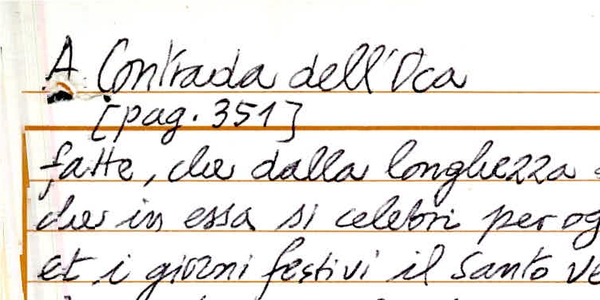 A Contrada dell'Oca
[pag. 351]
fatte, che dalla longhezza
che in essa si celebri per og
et i giorni festivi il Santo Ve